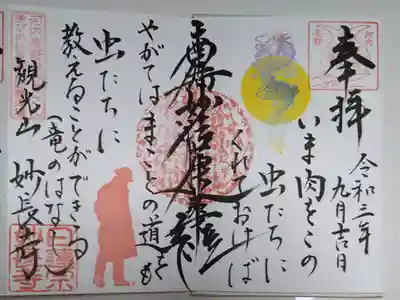 奉拝
令和三年
九月吉日
いま肉をこの
虫たちに
くれておけば
南無妙法蓮華経
やがてはまことの道をも
虫たちに
教えることができる
(竜のはなし)
観光山 妙長寺